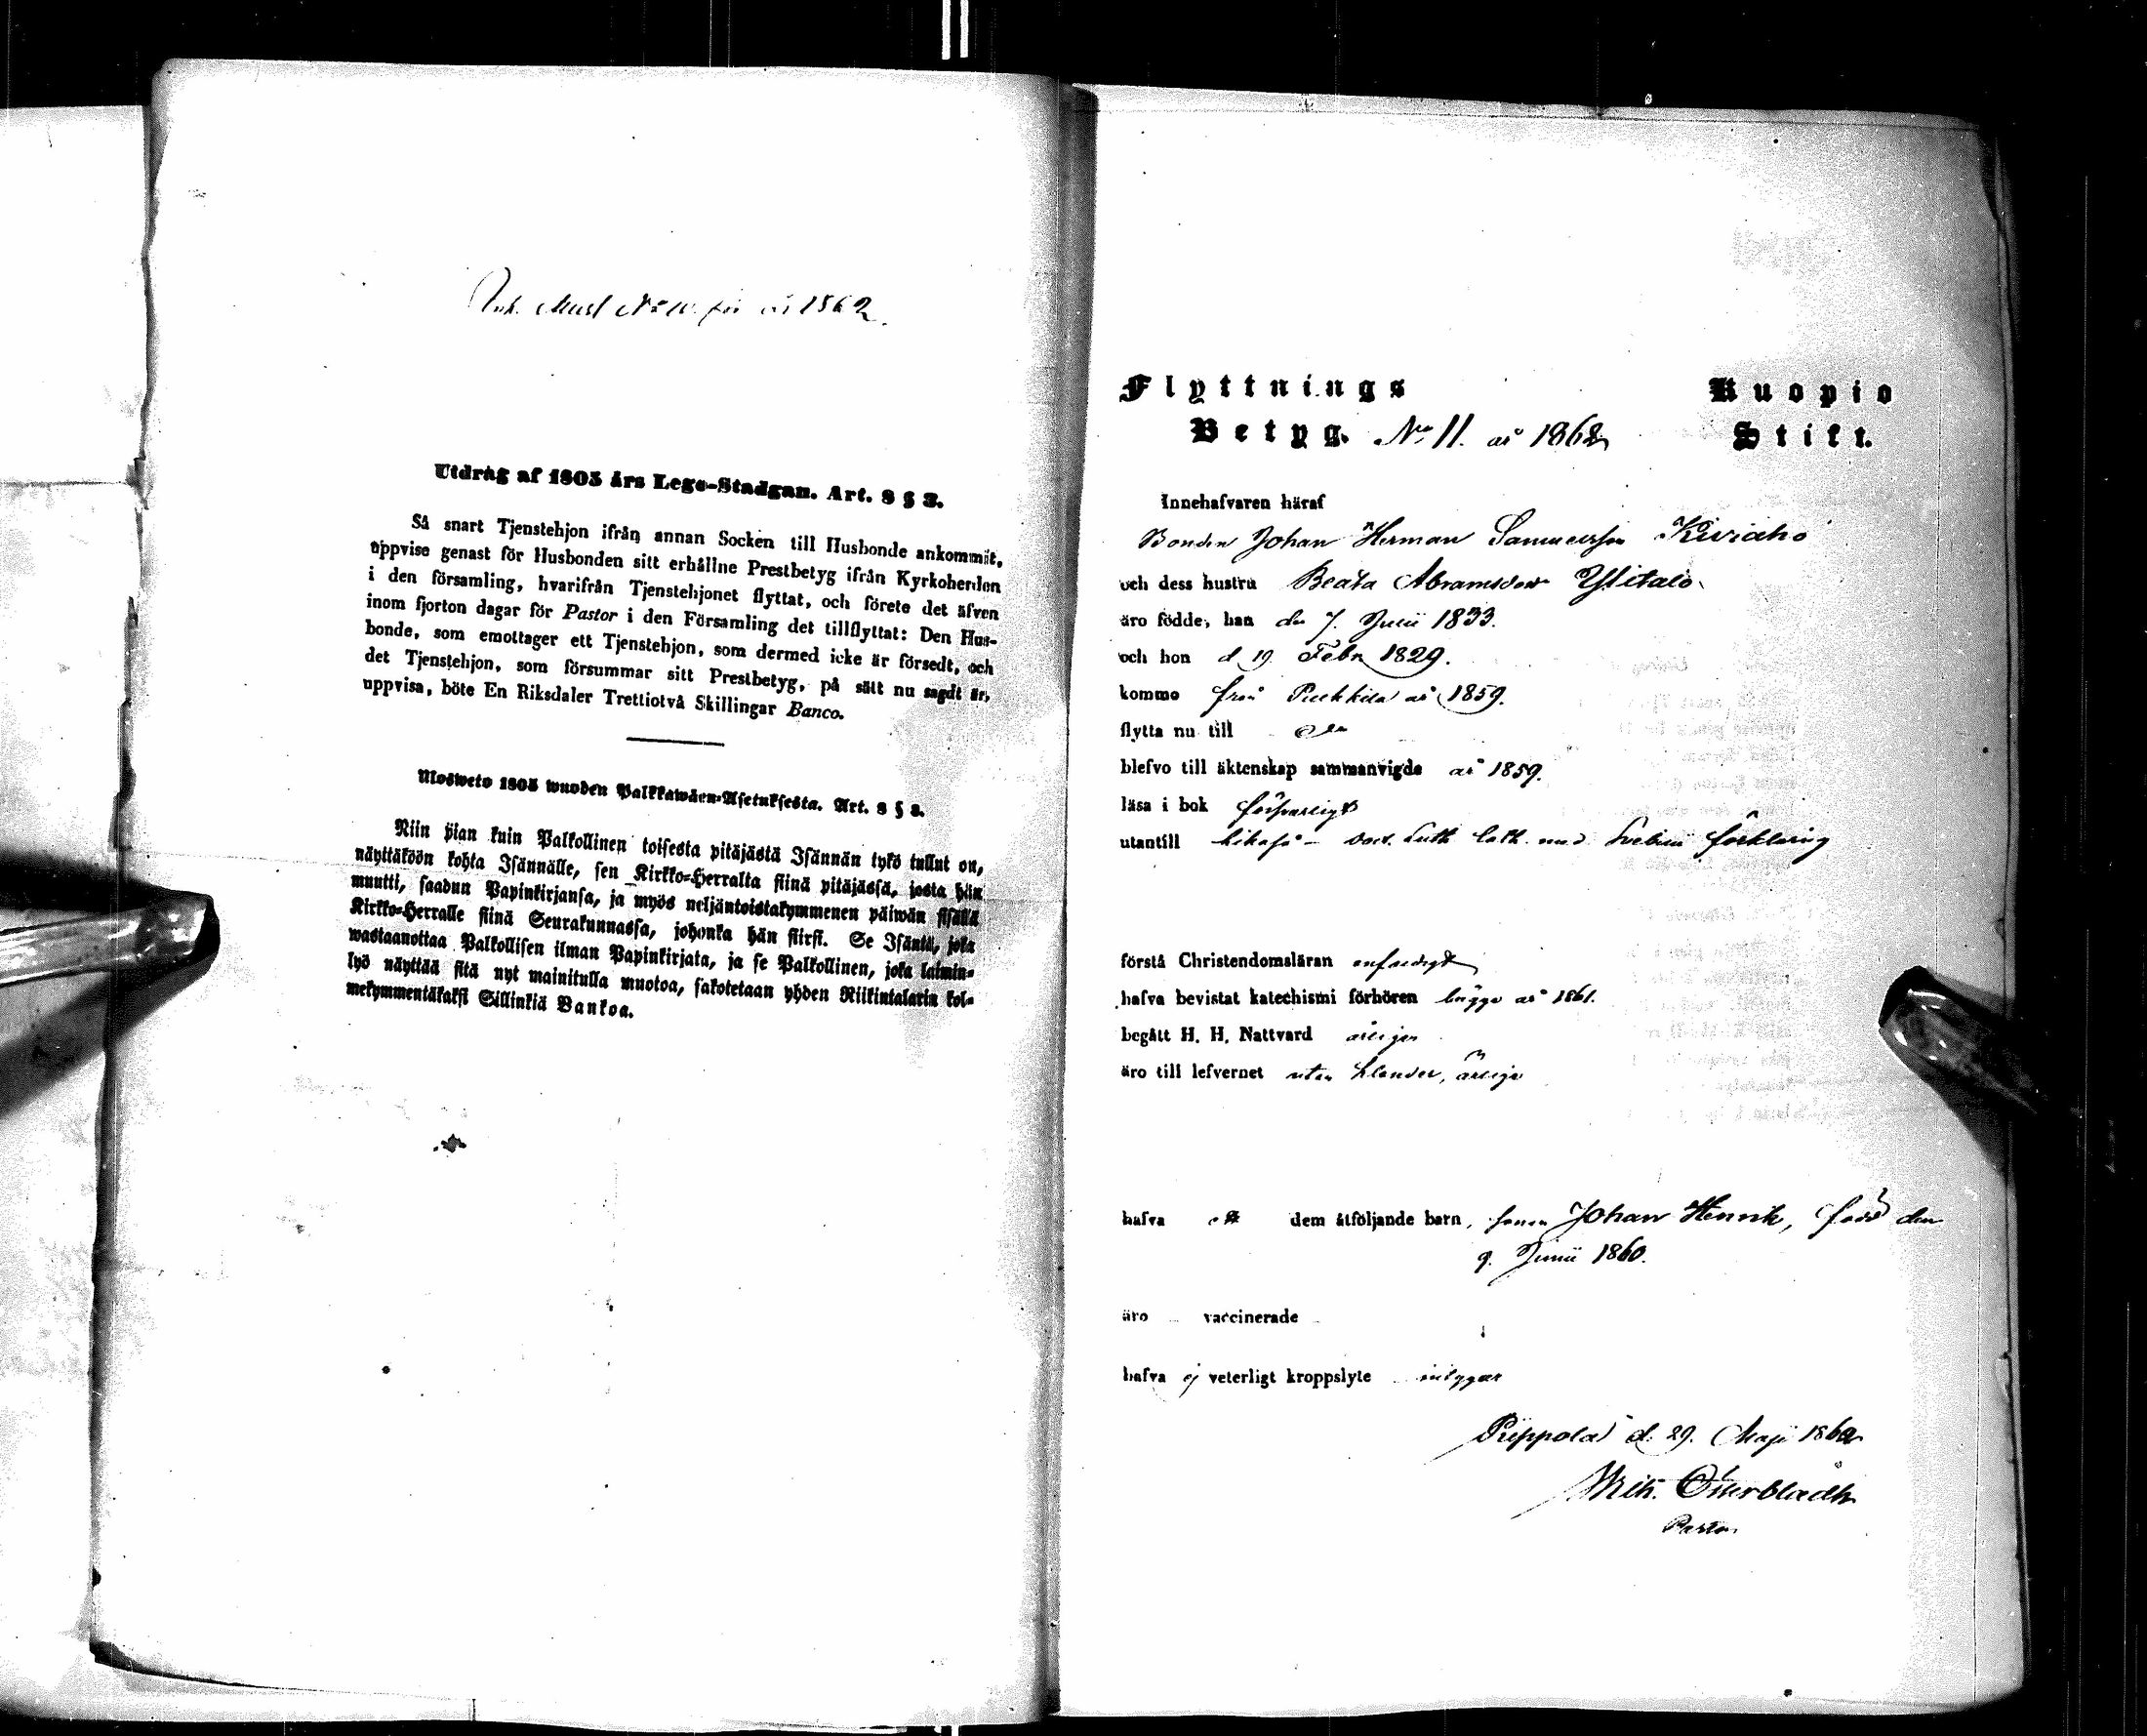 Ink. Attest No 10. för år 1862.
Utdrag af 1805 års Lego-Stadgan. Art. 8 § 3.
Så snart Tjenstehjon ifrån annan Socken till Husbonde ankommit,
uppvise genast för Husbonden sitt erhållne Prestbetyg ifrån Kyrkoherden
i den församling, hvarifrån Tjenstehjonet flyttat, och förete det äfven
inom fjorton dagar för Pastor i den Församling det tillflyttat: Den Hus-
bonde, som emottager ett Tjenstehjon, som dermed icke är försedt, och
det Tjenstehjon, som försummar sitt Prestbetyg, på sätt nu sagdt är,
uppvisa, böte En Riksdaler Trettiotvå Skillingar Banco.
Ulosweto 1805 wuoden Palkkawäen-Asetuksesta. Art. 8 § 3.
Niin pian kuin Palkollinen toisesta pitäjästä Isännän tykö tullut on,
näyttäköön kohta Isännälle, sen Kirkko-Herralta siinä pitäjässä, josta hän
muutti, saadun Papinkirjansa, ja myös neljäntoistakymmenen päiwän sisällä
Kirkko-Herralle siinä Seurakunnassa, johonka hän siirsi. Se Isäntä, joka
wastaanottaa Palkollisen ilman Papinkirjata, ja se Palkollinen, joka laimin-
lyö näyttää sitä nyt mainitulla muotoa, sakotetaan yhden Riikintalarin kol-
mekymmentäkaksi Sillinkiä Bankoa.
Flyttnings Kuopio
Betyg. No 11. år 1862 Stift.
Innehafvaren häraf
Bonden Johan Herman Samuelsson Kiviaho
och dess hustru Beata Abramsdotr Ylitalo
äro födde, han den 7. Julii 1833.
och hon d 19 Febr 1829.
komme från år 1859.
flytta nu till
blefvo till äktenskap sammanvigde år 1859.
läsa i bok försvarligt
utantill likaså - Luth. Cath. med Svebilii förklaring
förstå Christendomsläran enfaldigt
hafva bevistat katechismi förhören begge år 1861.
begått H. H. Nattvard årligen
äro till lefvernet utan klander, ärliga
hafva ett dem åtföljande barn, sonen Johan Henrik, född den
9. Junii 1860.
äro vaccinerade
hafva ej veterligt kroppslyte
Piippola d. 29. Maji 1862
Österbladh
Pastor